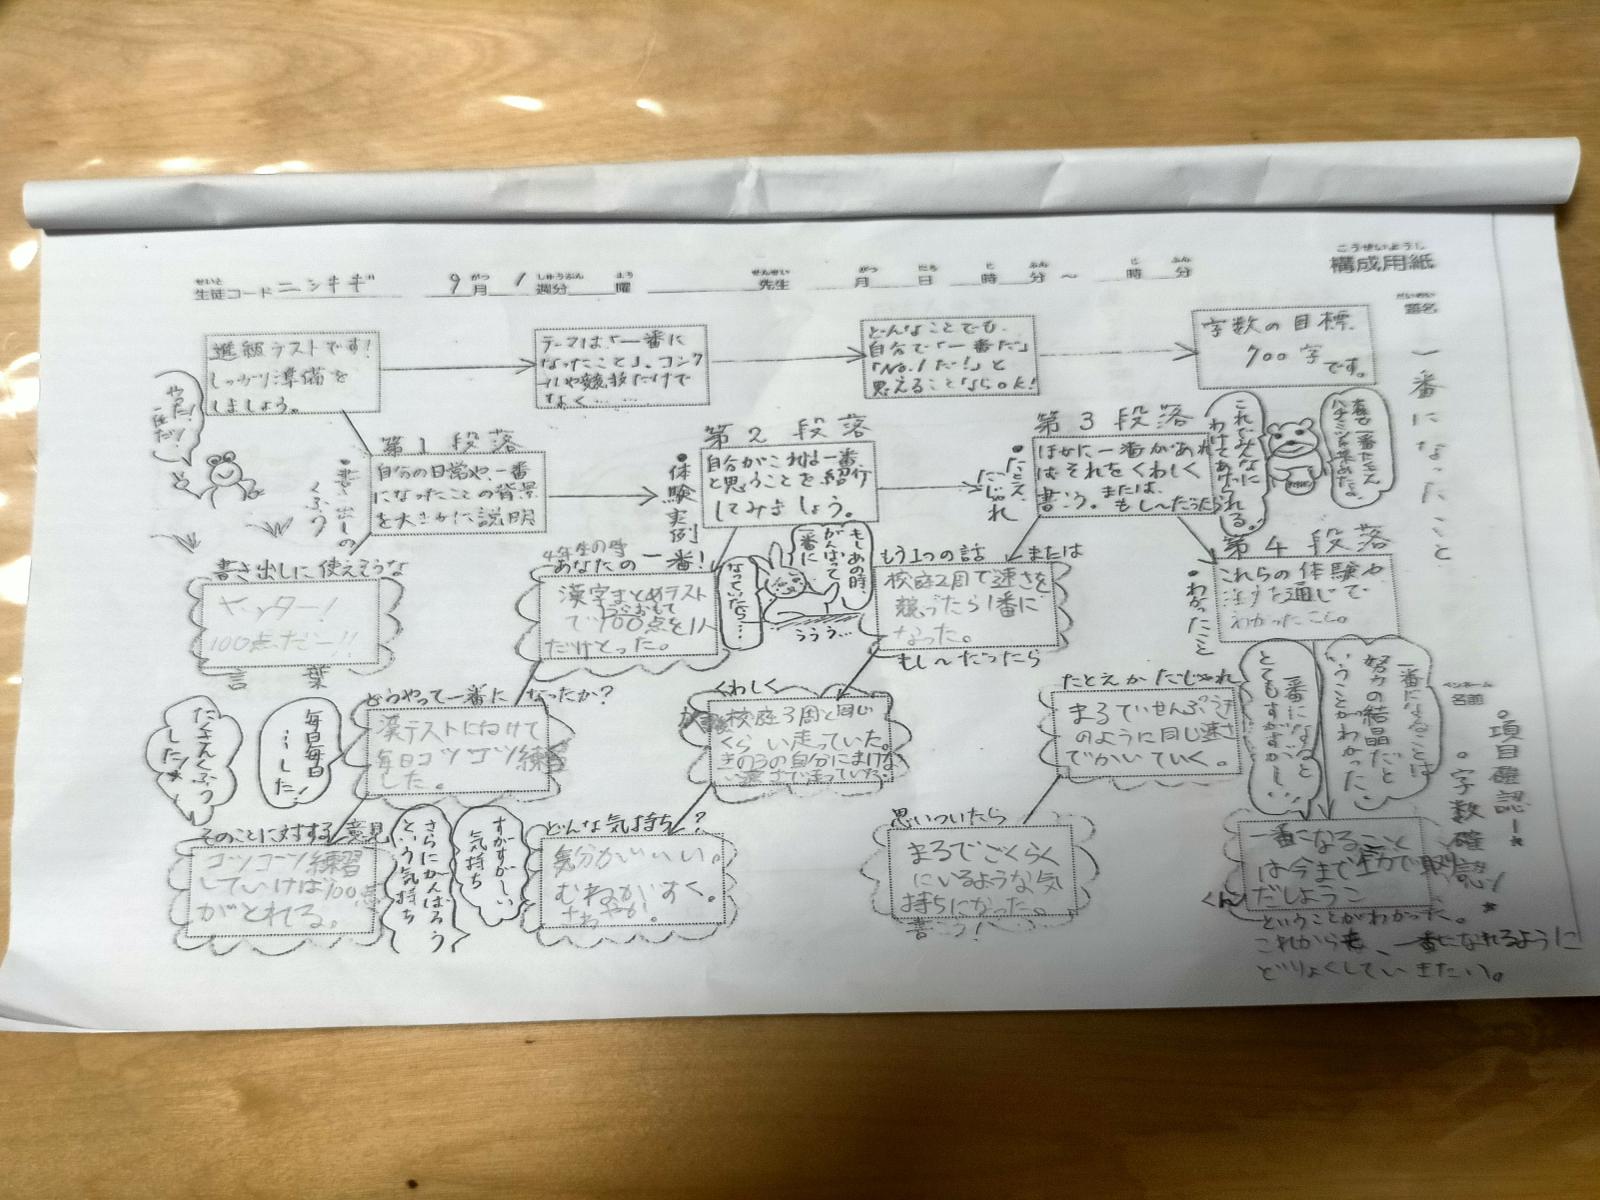 こうせいようし
構成用紙
せいと
生徒コード ニシキギ 9月 1週分 曜 先生 月 日 時 分 ～ 時 分
だいめい
題名
一番になったこと
ペンネーム
名前
進級テストです!
しっかり準備を
しましょう。
テーマは、「一番に
なったこと」。コンク
ールや競技だけで
なく……
どんなことでも、
自分で「一番だ」
「No.1だ!」と
思えることならOK!
字数の目標
700字
です。
やった!
一位だ!
第1段落
自分の日常や、一番
になったことの背景
を大まかに説明
・書き出しの
くふう
書き出しに使えそうな
ヤッター!
100点だー!!
言葉
・体験実例
第2段落
自分がこれは一番
と思うことを紹介
してみましょう。
4年生の時
あなたの一番!
漢字まとめテスト
で100点を1人
だけとった。
もしあの時、
がんばって
一番に
なっていたら…
ううう…
・たとえ
だじゃれ
第3段落
ほかに一番があれ
ばそれをくわしく
書こう。または、
もし～だったら
これでみんなに
わけてあげられる。
森で一番たくさん
ハチミツを集めたよ。
もう1つの話 または
校庭2周で速さを
競ったら1番に
なった。
もし～だったら
第4段落
これらの体験や
話を通じて
わかったこと。
・わかったこと
どうやって一番になったか?
漢テストに向けて
毎日コツコツ練習
した。
毎日毎日
…した!
たくさんくふう
した!
くわしく
校庭3周と同じ
くらい走っていた。
きのうの自分にまけな
い速さで走っていた。
たとえかだじゃれ
まるでいせんぷうき
のように同じ速さ
でかいていく。
一番になると
とてもすがすがしい…
一番になることは
努力の結晶だと
いうことがわかった。
・項目確認!
・字数確認!
そのことに対する意見
コツコツ練習
していけば100点
がとれる。
さらにがんばろう
という気持ち
すがすがしい
気持ち
どんな気持ち?
気分がいい。
むねがすく。
さわやか。
思いついたら
まるでごくらく
にいるような気
持ちになった。
書こう!
一番になること
は今まで全力で取り
くんだしょうこ
ということがわかった。
これからも、一番になれるように
どりょくしていきたい。